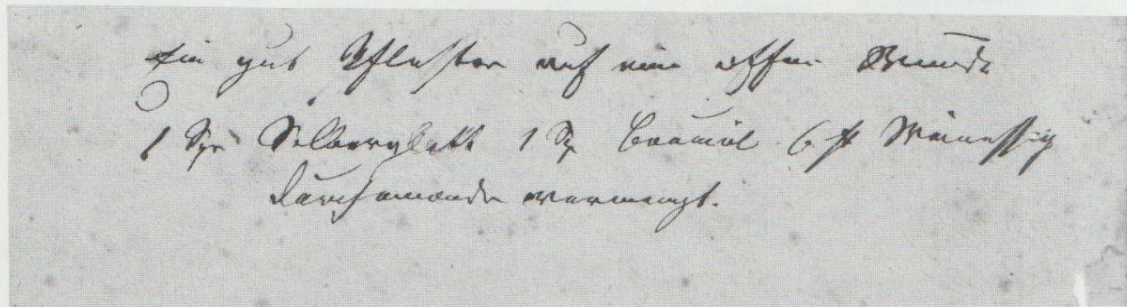 Ein gut Pflaster auf eine offene Wunde
1 Silberglätt 1 Baumöl 6 Weinessig
durcheinander vermengt.